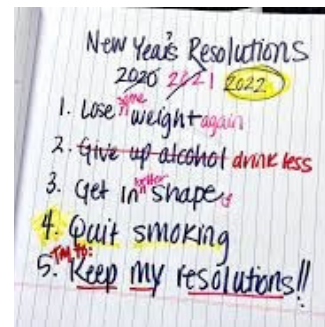 New Year's Resolutions
2020 2021 2022
1. Lose some weight again
2. Give up alcohol drink less
3. Get in better shape
4. Quit smoking
5. Try to: Keep my resolutions!!